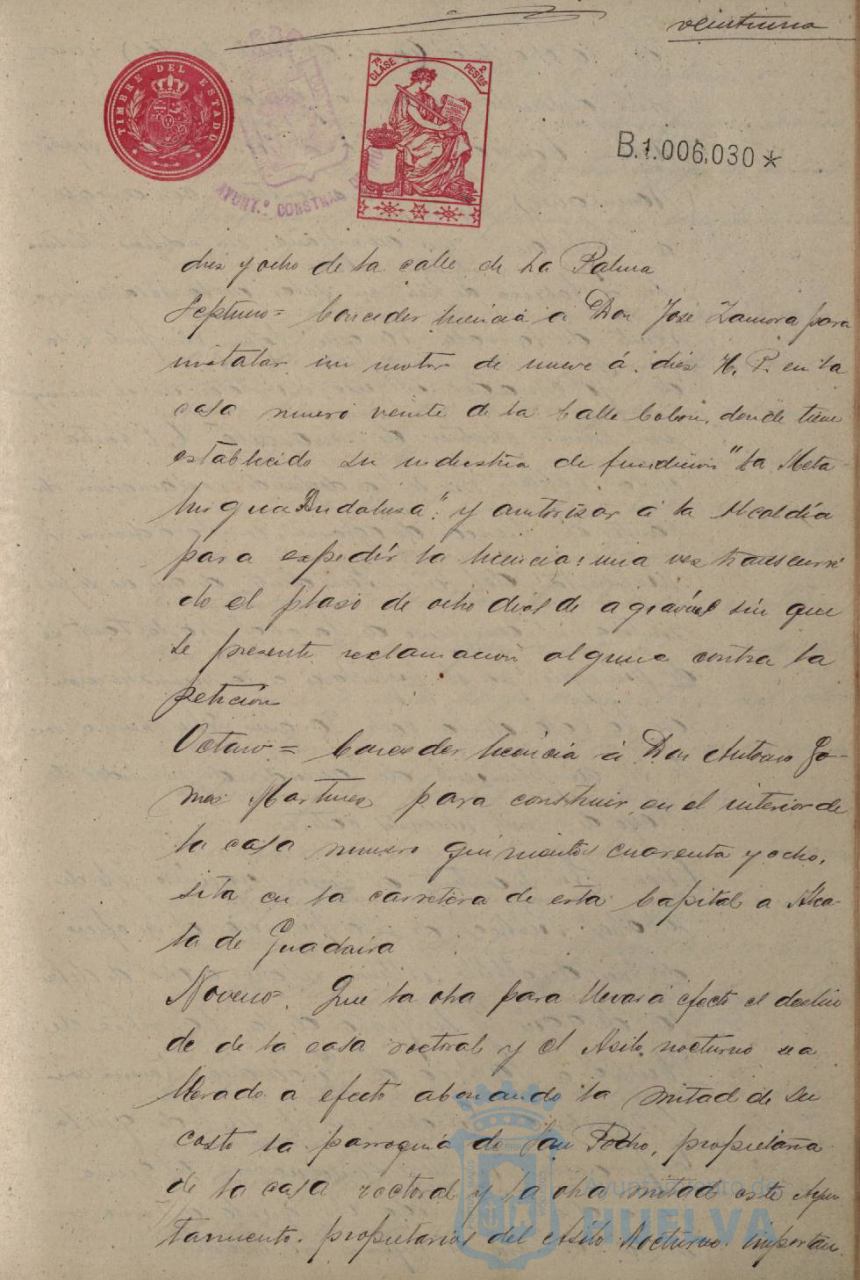 veintiuno
TIMBRE DEL ESTADO
7ª CLASE 2 PESETAS
AYUNT.º CONSTNAL
B.1.006.030 *
dies y ocho de la calle de La Palma
Septimo = Conceder licencia a Don José Zamora para
instalar un motor de nueve á dies H. P. en la
casa numero veinte de la Calle Colon, donde tiene
establecido su industria de fundicion "La Meta-
lurgica Andalusa". y autorizar á la Alcaldía
para expedir la licencia: una ves transcurri
do el plaso de ocho dias de agravios sin que
se presente reclamacion alguna contra la
petición
Octavo = Conceder licencia á Don Antonio Go-
mes Martines para construir en el interior de
la casa numero quinientos cuarenta y ocho,
sita en la carretera de esta Capital a Alca-
la de Guadaira
Noveno = Que la obra para llevar á efecto el deslin
de de la casa rectoral y el Asilo nocturno sea
llevado a efecto abonando la mitad de su
costo la parroquia de San Pedro, propietaria
de la casa rectoral y la otra mitad este Ayun
tamiento. propietarios del Asilo Nocturno. importan
Ayuntamiento de
HUELVA